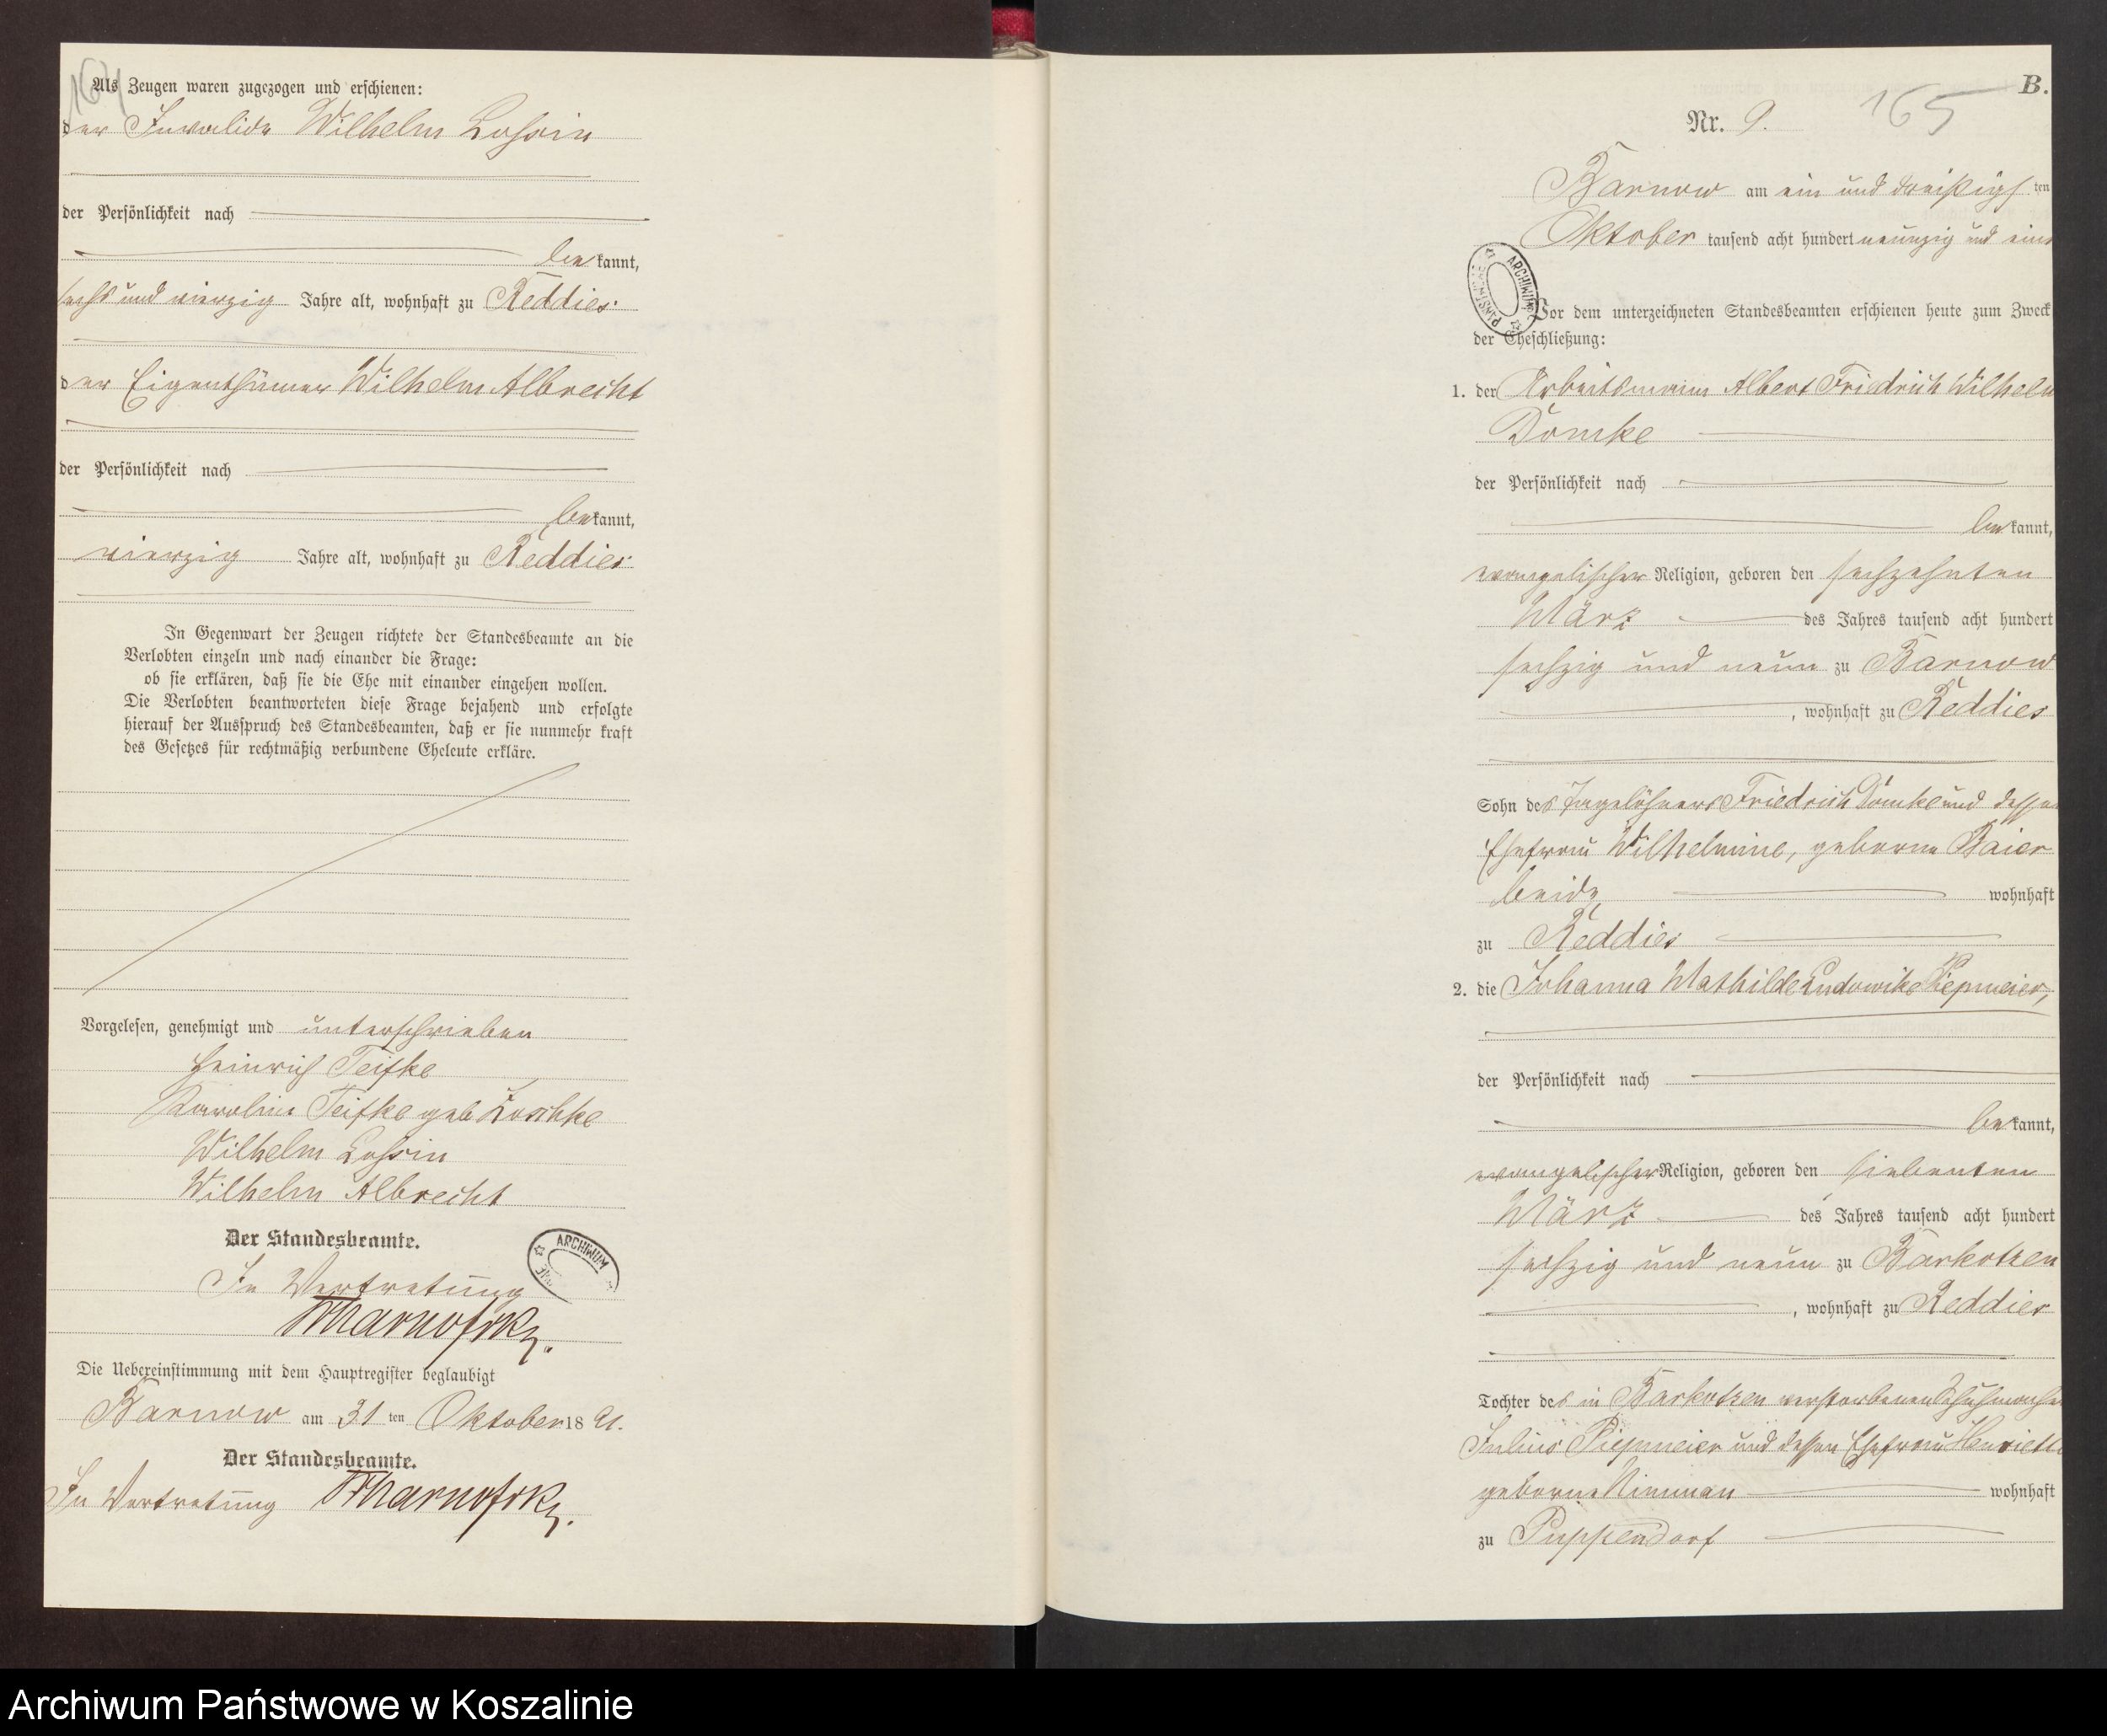 164
Als Zeugen waren zugezogen und erschienen:
der Invalide Wilhelm Lossin
der Persönlichkeit nach
be kannt,
sechs und vierzig Jahre alt, wohnhaft zu Reddies
der Eigenthümer Wilhelm Albrecht
der Persönlichkeit nach
be kannt,
vierzig Jahre alt, wohnhaft zu Reddies
In Gegenwart der Zeugen richtete der Standesbeamte an die
Verlobten einzeln und nach einander die Frage:
ob sie erklären, daß sie die Ehe mit einander eingehen wollen.
Die Verlobten beantworteten diese Frage bejahend und erfolgte
hierauf der Ausspruch des Standesbeamten, daß er sie nunmehr kraft
des Gesetzes für rechtmäßig verbundene Eheleute erkläre.
Vorgelesen, genehmigt und unterschrieben
Heinrich Teifke
Karoline Teifke geb Koschke
Wilhelm Lossin
Wilhelm Albrecht
Der Standesbeamte.
ARCHIWUM
In Vertretung
Die Uebereinstimmung mit dem Hauptregister beglaubigt
Barnow am 31 ten Oktober 18 91.
Der Standesbeamte.
In Vertretung
B.
Nr. 9. 165
Barnow am ein und dreißigs ten
Oktober tausend acht hundert neunzig und eins
ARCHIWUM PAŃSTWOWE
Vor dem unterzeichneten Standesbeamten erschienen heute zum Zweck
der Eheschließung:
1. der Arbeitsmann Albert Friedrich Wilhelm
Domke
der Persönlichkeit nach
be kannt,
evangelischer Religion, geboren den sechzehnten
März des Jahres tausend acht hundert
sechzig und neun zu Barnow
, wohnhaft zu Reddies
Sohn des Tagelöhners Friedrich Domke und dessen
Ehefrau Wilhelmine, geborne Baier
beide wohnhaft
zu Reddies
2. die Johanna Mathilde Ludowike Piepmeier,
der Persönlichkeit nach
be kannt,
evangelischer Religion, geboren den siebenten
März des Jahres tausend acht hundert
sechzig und neun zu Barkotzen
, wohnhaft zu Reddies
Tochter des in Barkotzen verstorbenen Schuhmachers
Julius Piepmeier und dessen Ehefrau Henriette
geborne Nimman wohnhaft
zu Puppendorf
Archiwum Państwowe w Koszalinie